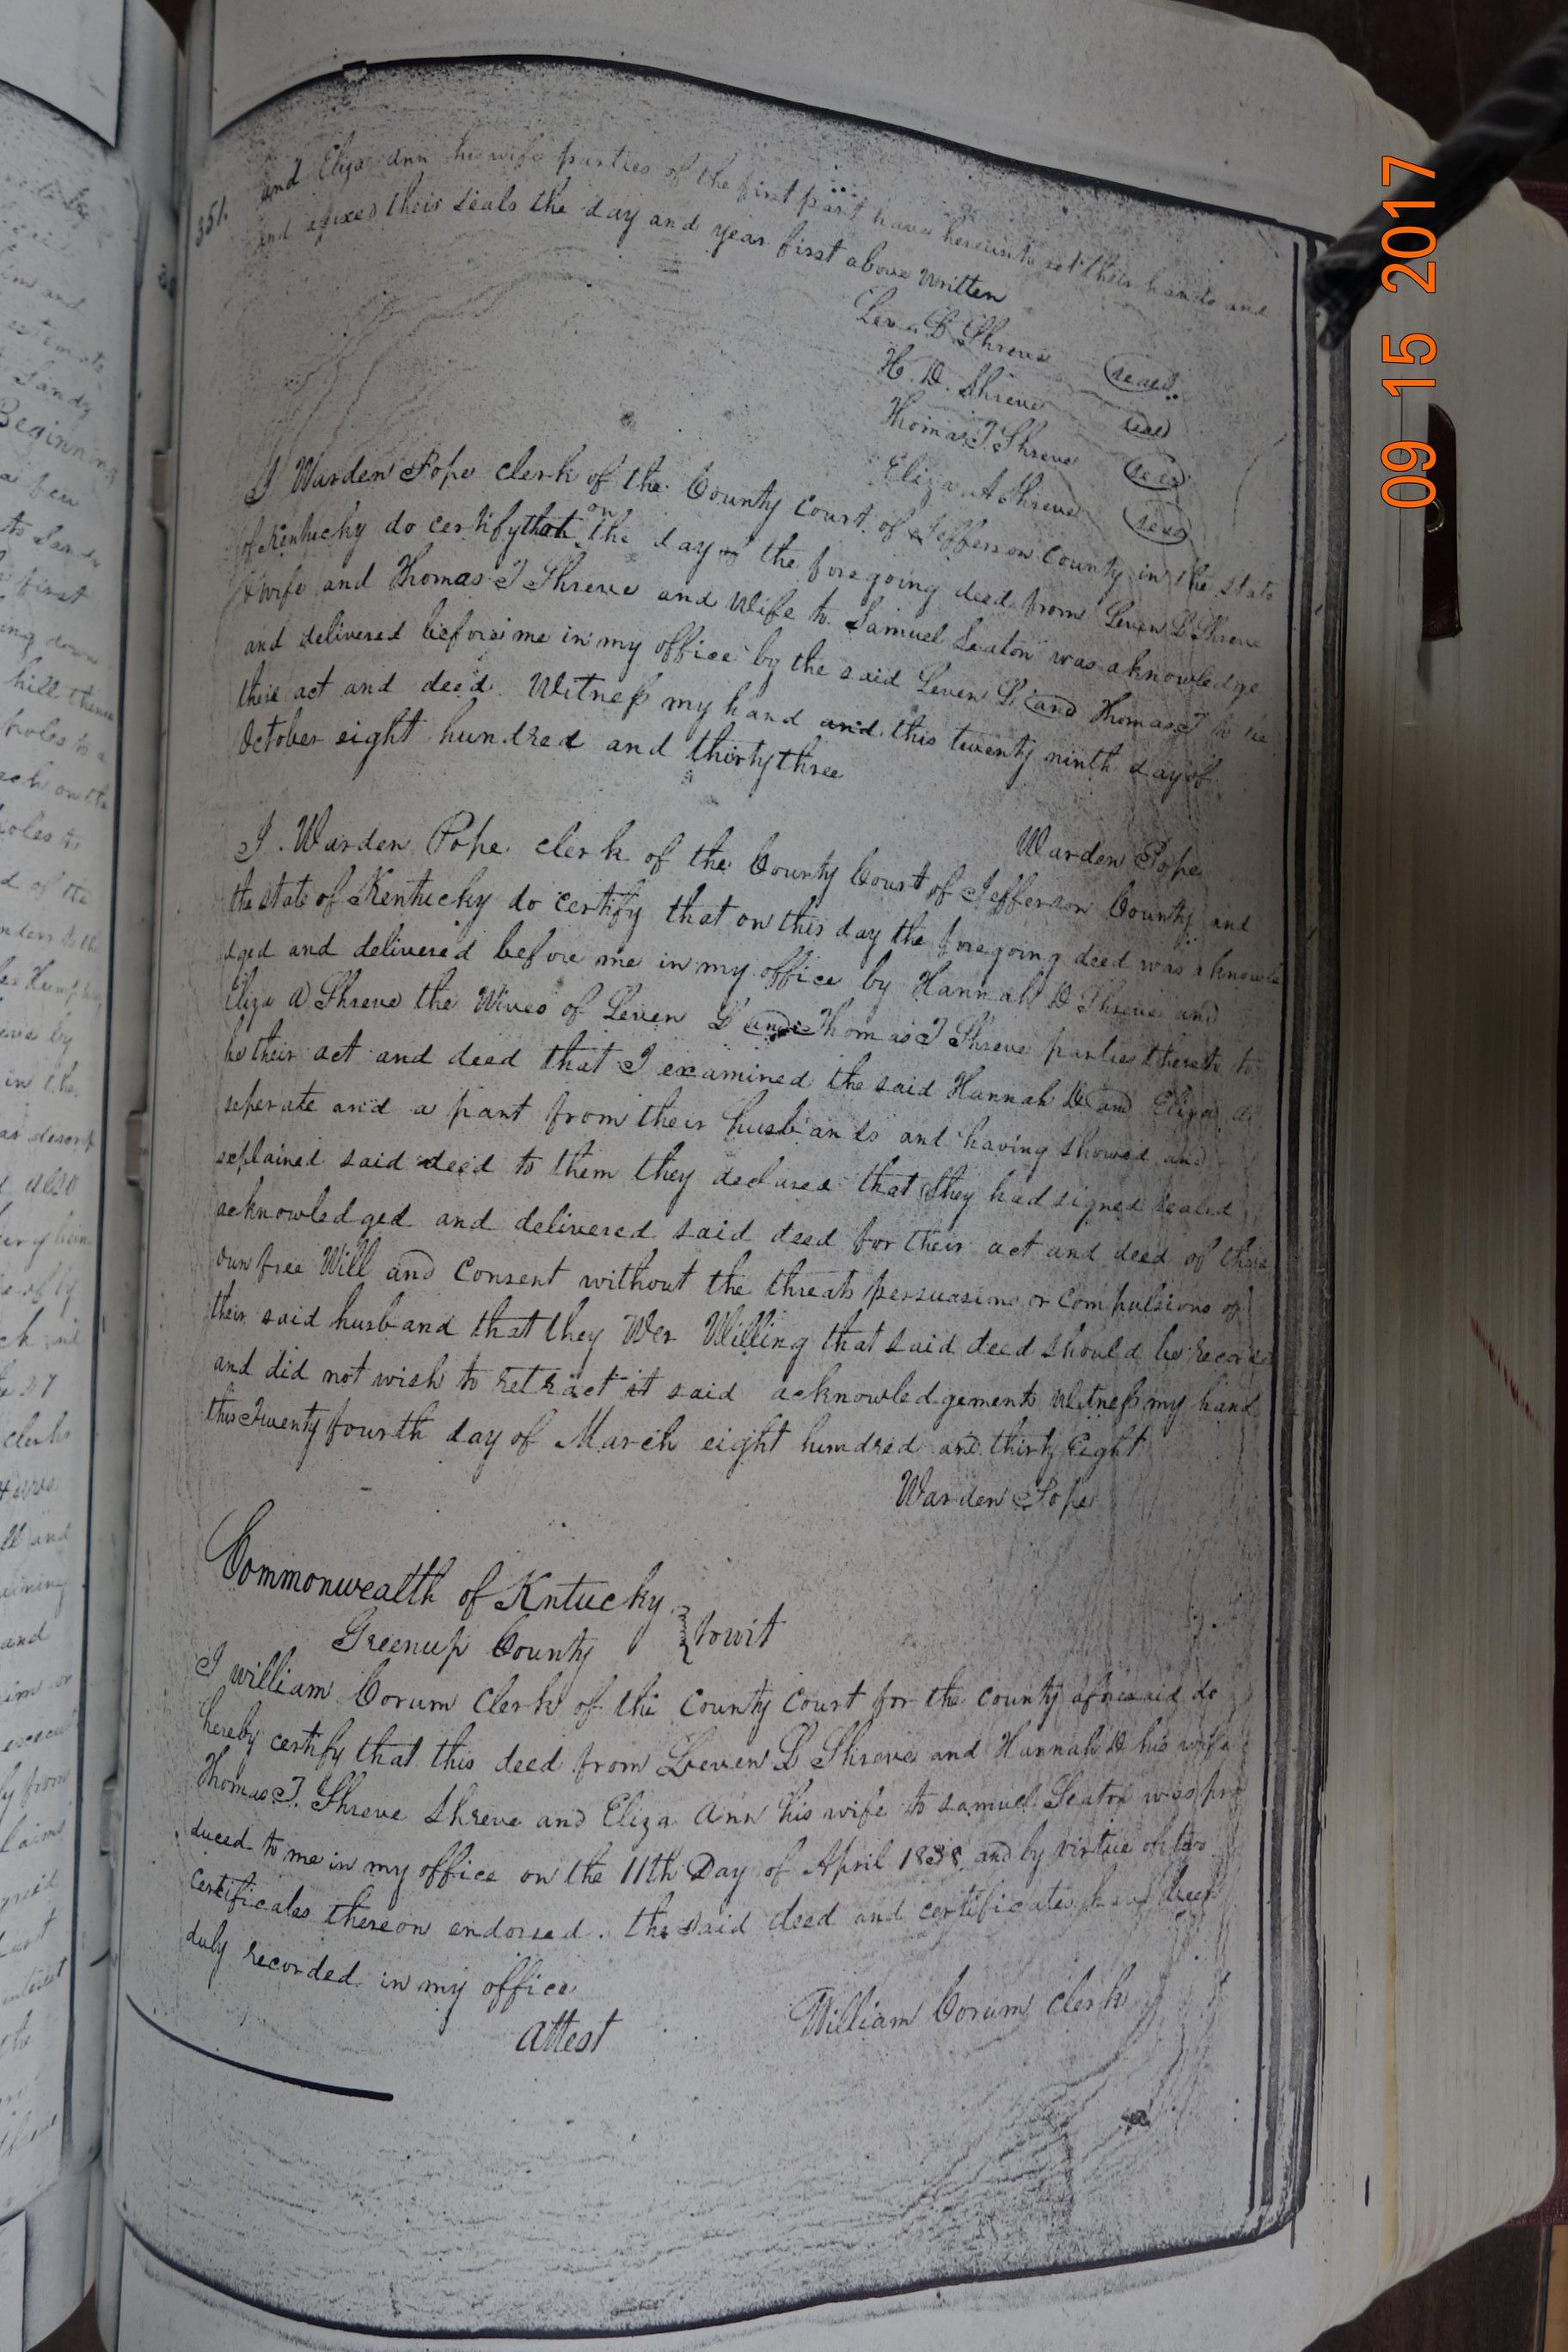 351.
and Eliza Ann his wife parties of the first part have hereunto set their hands and
and afixed their seals the day and year first above written
Leven L Shreve seal
H. D. Shreve seal
Thomas T Shreve seal
Eliza A Shreve seal
I Warden Pope clerk of the County court of Jefferson county in the state
of Kentucky do certify that on the day the foregoing deed from Leven L Shreve
& wife and Thomas T Shreve and Wife to Samuel Seaton was aknowledge
and delivered before me in my office by the said Leven L and Thomas T to be
their act and deed. Witness my hand and this twenty ninth day of
October eight hundred and thirty three
Warden Pope
I. Warden Pope clerk of the County Court of Jefferson County and
the state of Kentucky do certify that on this day the foregoing deed was aknowle
dged and delivered before me in my office by Hannah D Shreve and
Eliza A Shreve the Wives of Leven L and Thomas T Shreve parties thereto to
be their act and deed that I examined the said Hannah D and Eliza A
seperate and a part from their husbands and having showed and
explained said deed to them they declared that they had signed sealed
acknowledged and delivered said deed for their act and deed of their
own free Will and consent without the threats persuasions or compulsions of
their said husband that they Wer Willing that said deed should be record
and did not wish to retract it said acknowledgements Witness my hand
this Twenty fourth day of March eight hundred and thirty Eight
Warden Pope
Commonwealth of Kntucky
Greenup County } towit
I william Corum Clerk of the County Court for the county aforesaid do
hereby certify that this deed from Leven L Shreve and Hannah D his wife
Thomas T. Shreve Shreve and Eliza Ann his wife to samuel Seaton was pro
duced to me in my office on the 11th Day of April 1838 and by virtue of two
certificates thereon endorsed. the said deed and certificates have been
duly recorded in my office
Attest William Corum Clerk
09 15 2017